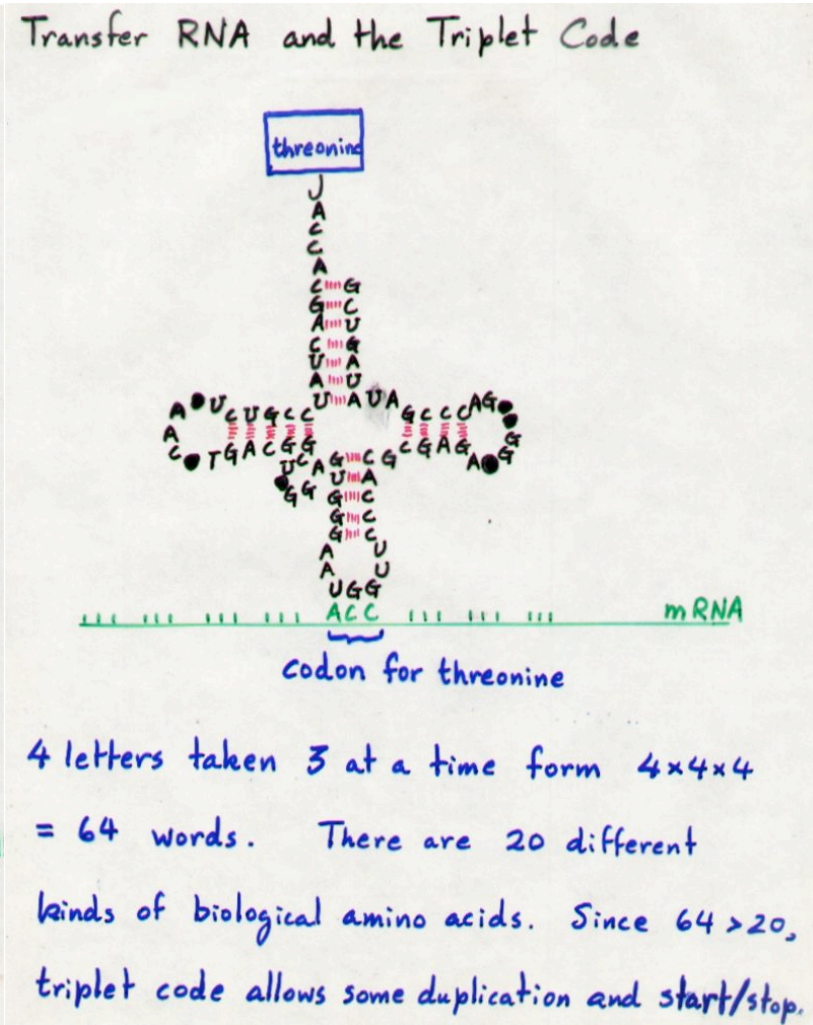 Transfer RNA and the Triplet Code
threonine
A
C
C
A
C G
G C
A U
C G
U A
A U
A U C U G C C U A U A G C C C A G
A G
C T G A C G G C G A G A G
U C A G C G
U A
G G G C
G C
G C
A U
A U
U G G
A C C mRNA
codon for threonine
4 letters taken 3 at a time form 4×4×4
= 64 words. There are 20 different
kinds of biological amino acids. Since 64 > 20,
triplet code allows some duplication and start/stop.